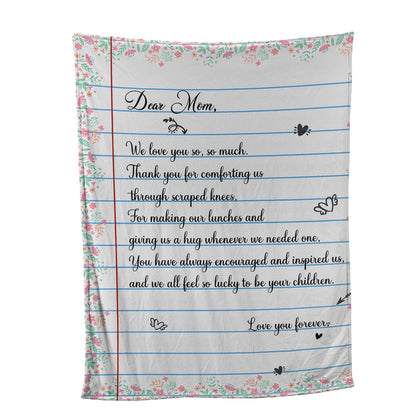 Dear Mom,
We love you so, so much.
Thank you for comforting us
through scraped knees.
For making our lunches and
giving us a hug whenever we needed one.
You have always encouraged and inspired us,
and we all feel so lucky to be your children.
Love you forever.